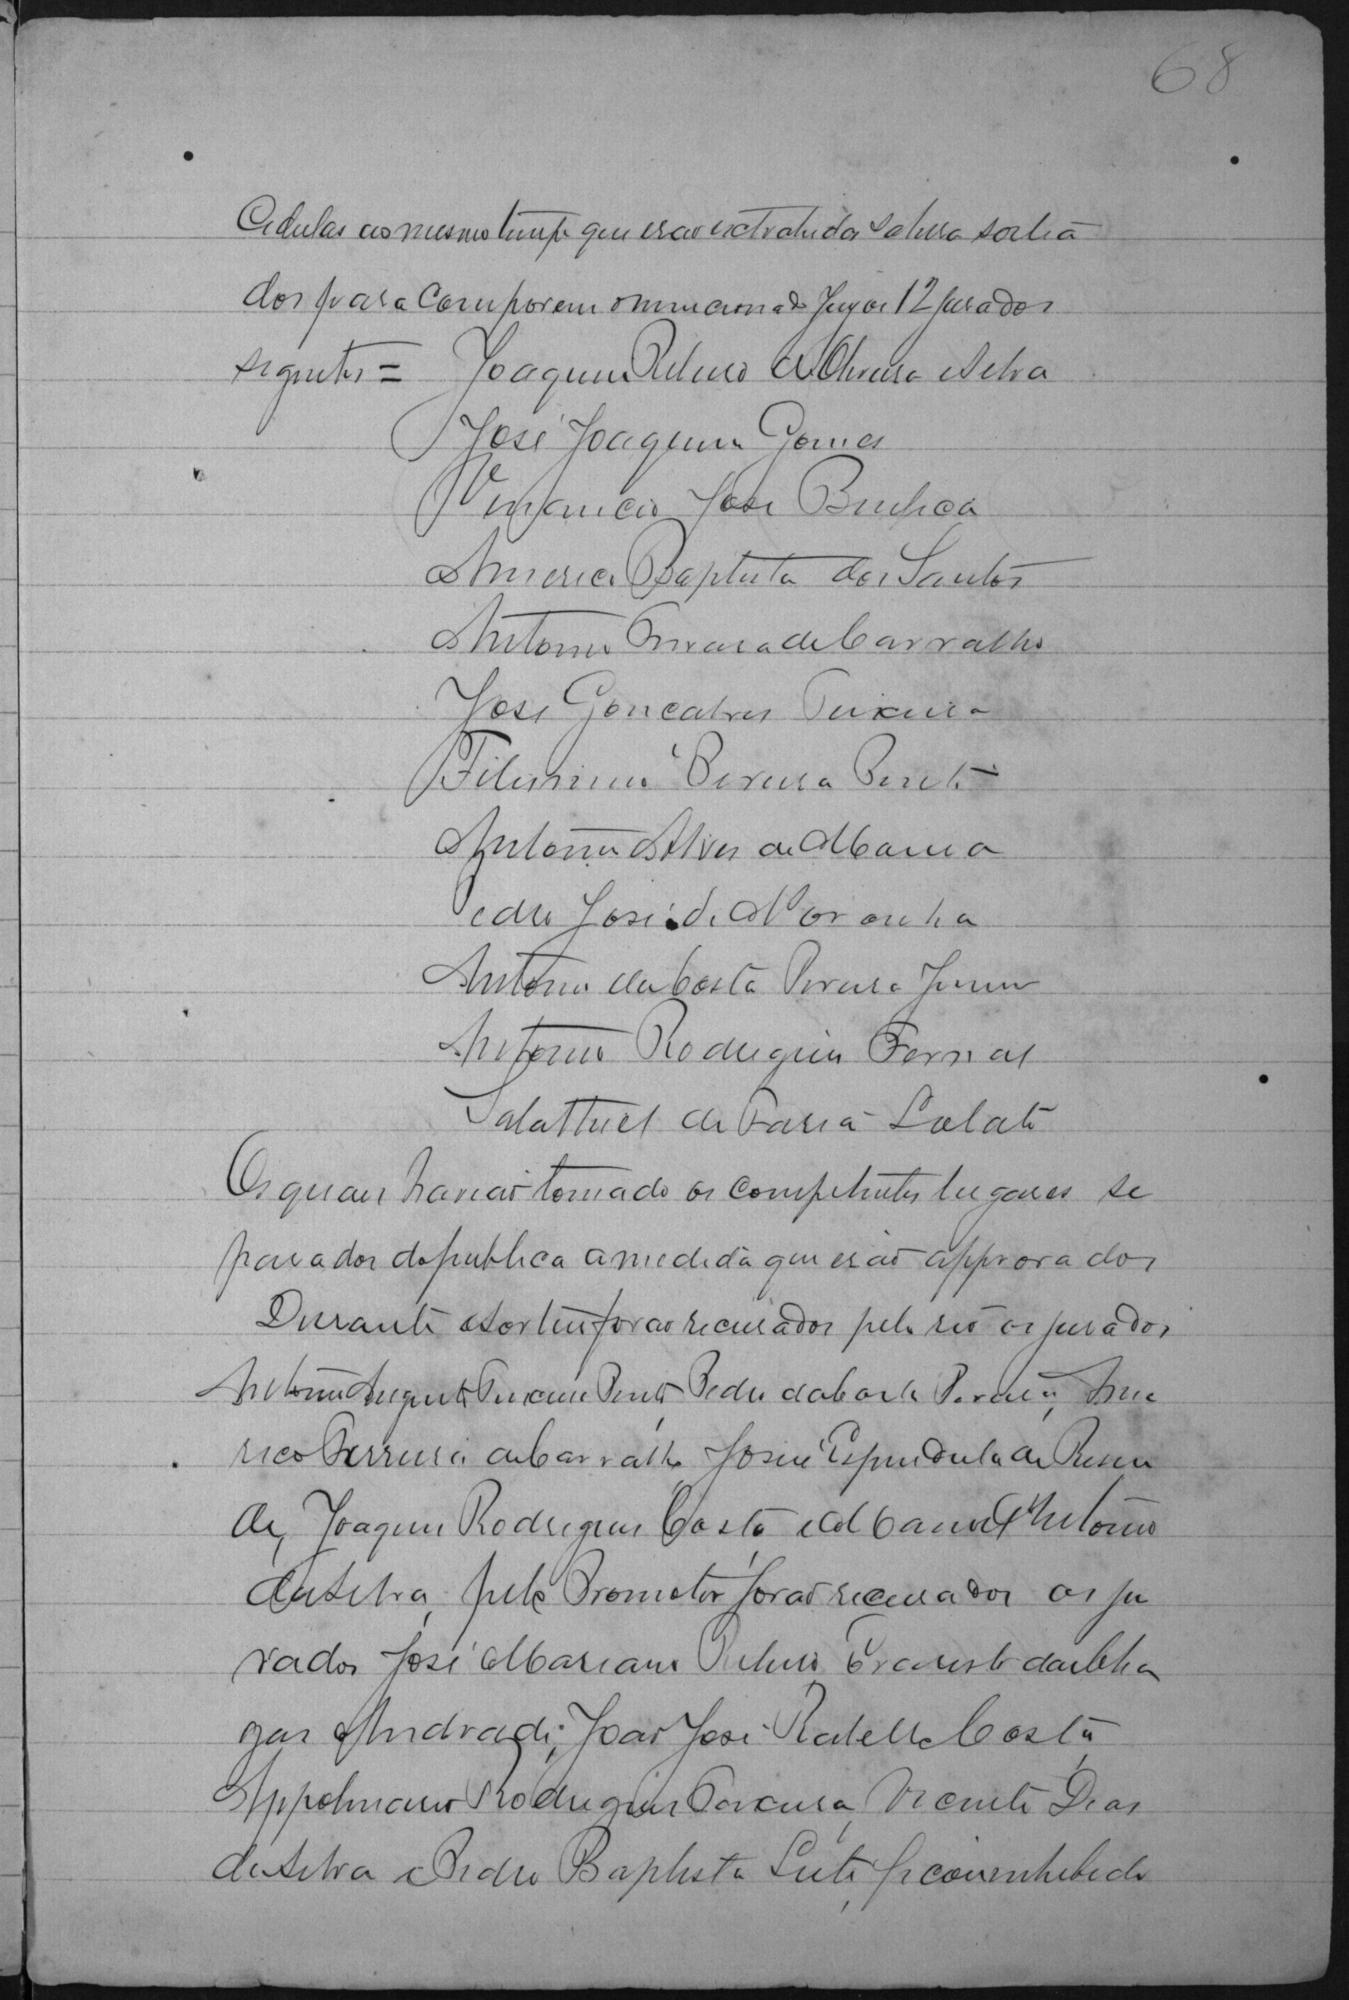 68
Cedulas ao mesmo tempo que erão extrahidas sahirão sortea
dos para comporem o mencionado Jury os 12 jurados
seguintes = Joaquim Ribeiro de Oliveira e Silva
José Joaquim Gomes
Venancio José
Americo Baptista dos Santos
Antonio de Carvalho
José Goncalves Teixeira
Pereira
Antonio Alves de
Pedro José de Noronha
Antonio da Costa Pereira Junior
Antonio Rodrigues
Salathiel de Faria Lobato
Os quaes havião tomado os competentes lugares se
parados do publico a medida que erão approvados
Durante o sorteio forão recusados pelo reo os jurados
Antonio Augusto Teixeira Pedro da Costa Pereira, Ame
rico Ferreira de Carvalho José Espindula de Resen
de, Joaquim Rodrigues Costa e Manoel Antonio
da Silva, pelo Promotor forão recusados os ju
rados José Mariano Ribeiro, Evaristo das Cha
gas Andrade, João José Rabello Costa,
Rodrigues Teixeira, Vicente Dias
da Silva e Pedro Baptista Leite, ficou inhibido